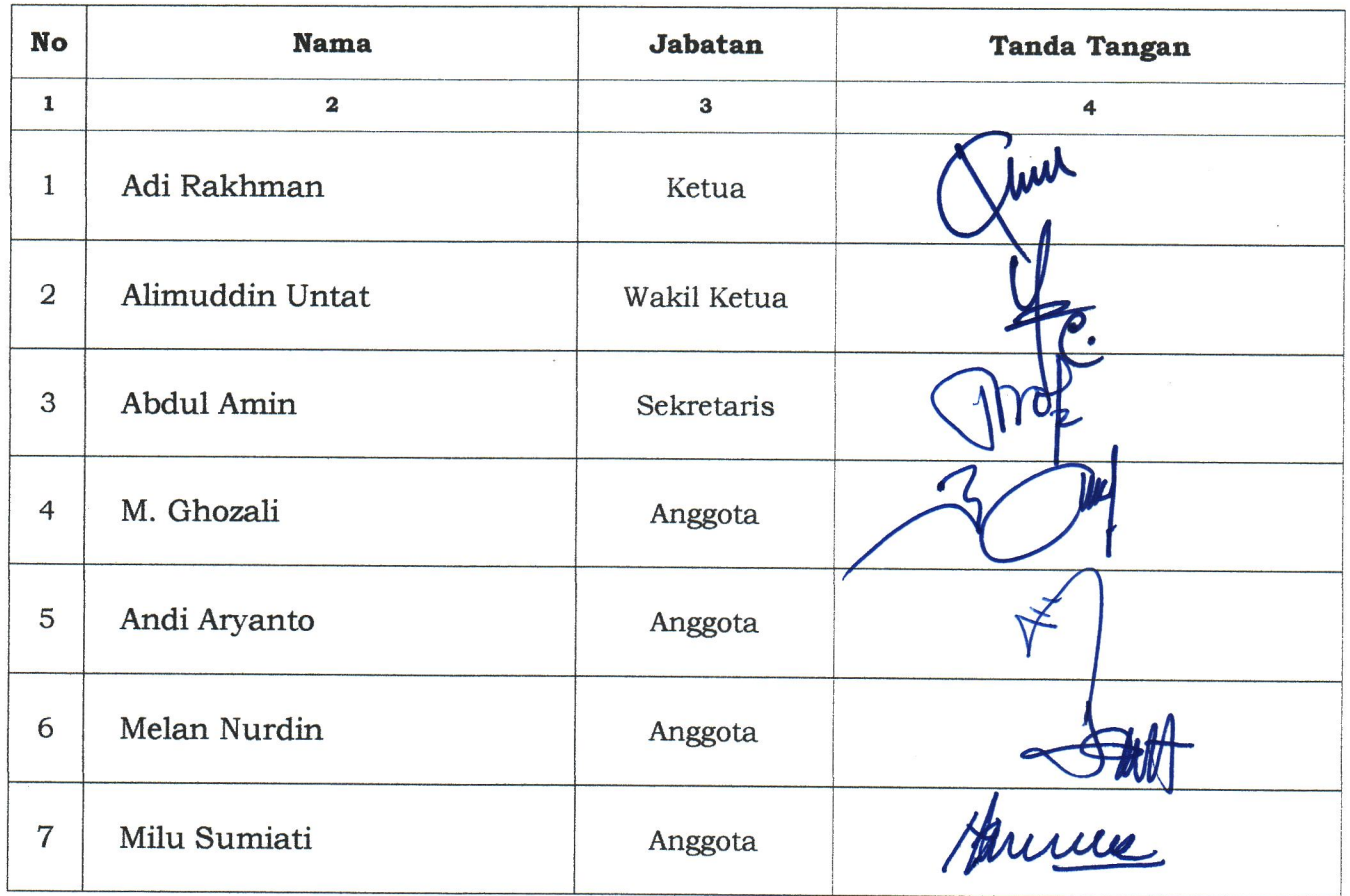 No Nama Jabatan Tanda Tangan
1 2 3 4
1 Adi Rakhman Ketua
2 Alimuddin Untat Wakil Ketua
3 Abdul Amin Sekretaris
4 M. Ghozali Anggota
5 Andi Aryanto Anggota
6 Melan Nurdin Anggota
7 Milu Sumiati Anggota